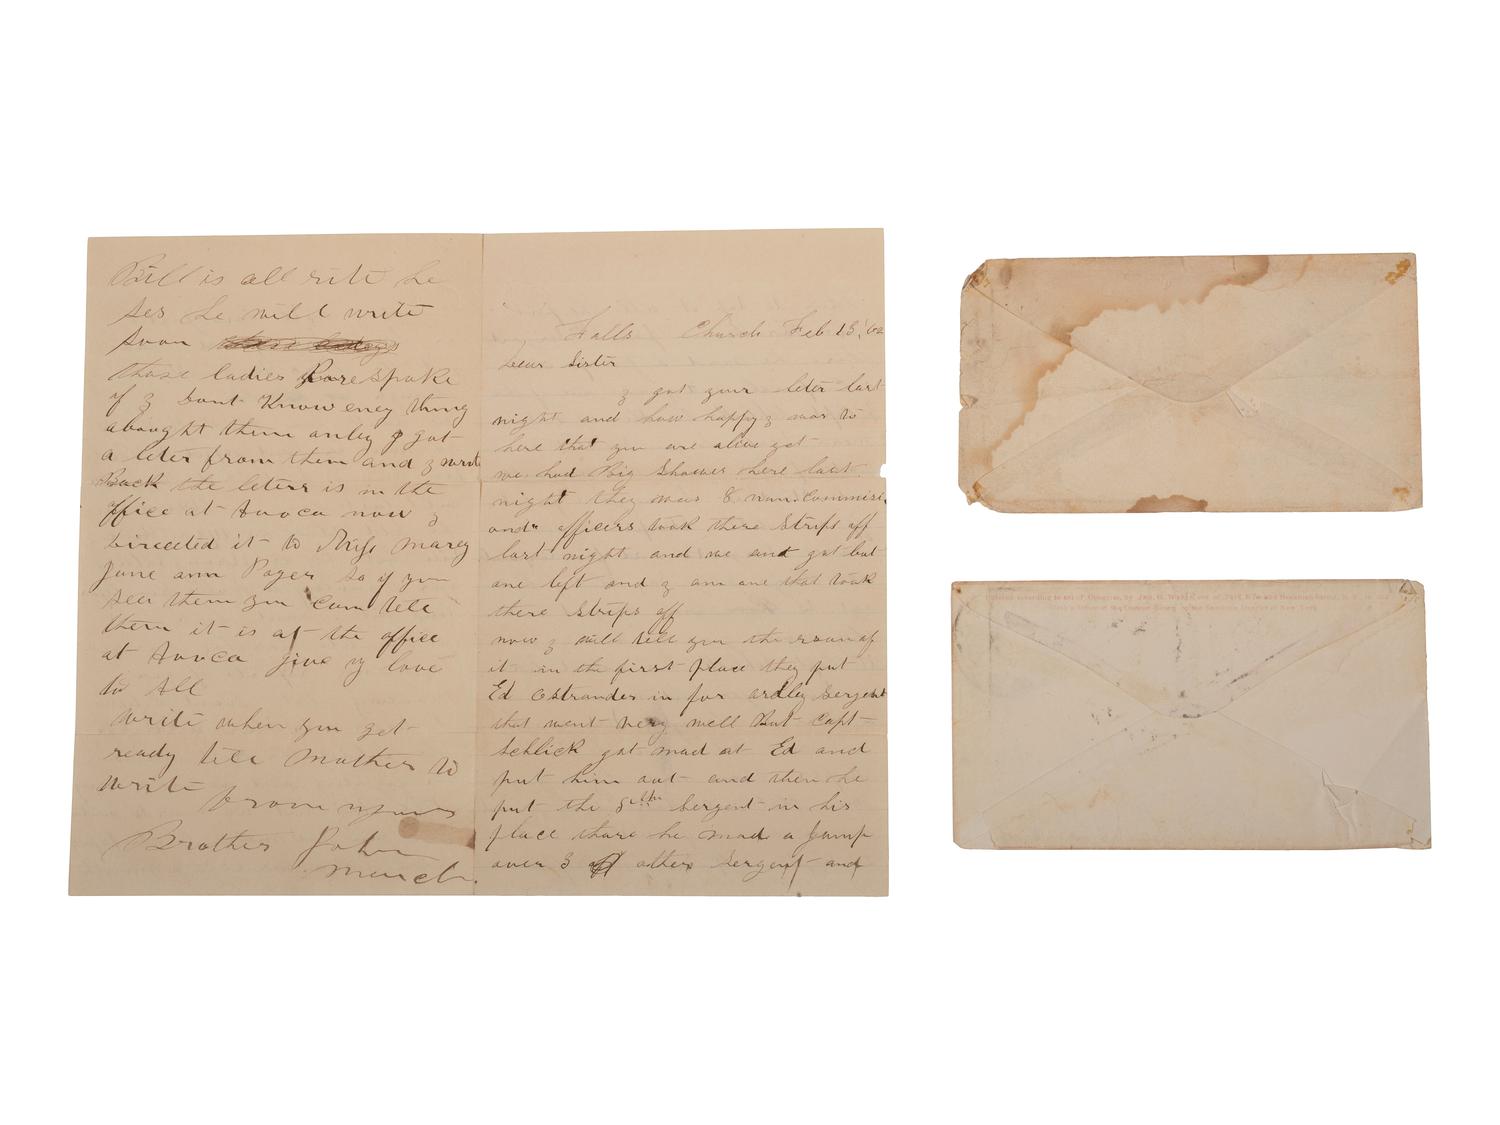 Falls Church Feb 13, 62
Dear Sister
I got your leter last
night and how happy I was to
here that you are alive yet
we had Big Shower here last
night they was 8 non. Commisi
and officers took there Strips off
last night and we and got but
one left and I am one that took
there Strips off
now I will tell you the reson of
it in the first place they put
Ed Ostrander in for ardley Sergent
that went very well But Capt
Schlick got mad at Ed and
put him out and then he
put the 5 Sergent in his
place thare he mad a Jump
over 3 other Sergent and
Bill is all rite he
ses he will write
soon
those ladies spoke
of I Dont Know eney thing
abought them onley I got
a leter from them and I write
Back the leters is in the
office at Avoca now I
Directed it to Miss marey
Jane ann so if you
see them you Can tele
them it is at the office
at Avoca give my love
to All
write when you get
ready tell Mother to
write
from yours
Brother John